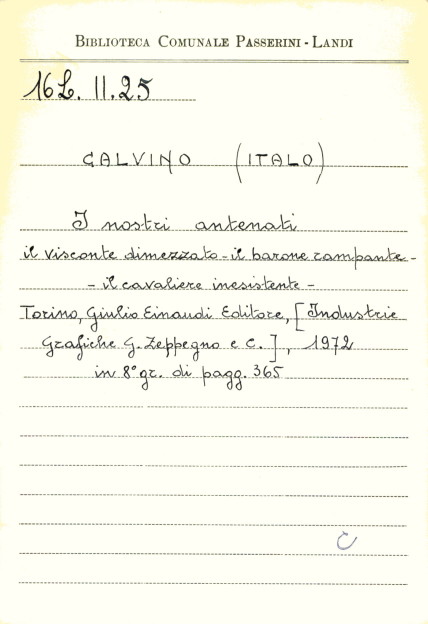 BIBLIOTECA COMUNALE PASSERINI - LANDI
16L. II. 25
CALVINO (ITALO)
I nostri antenati
il visconte dimezzato - il barone rampante -
- il cavaliere inesistente -
Torino, Giulio Einaudi Editore, [Industrie
Grafiche G. Zeppegno e C.], 1972
in 8° gr. di pagg. 365
C